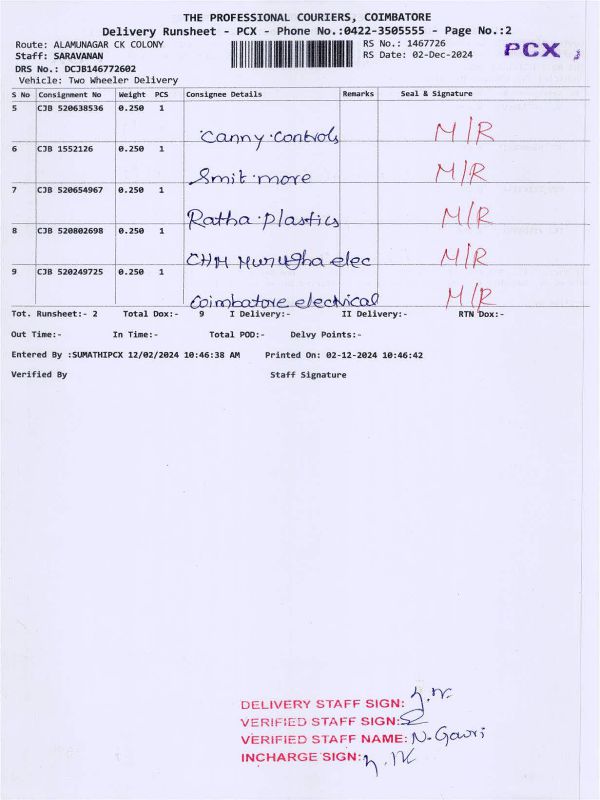 THE PROFESSIONAL COURIERS, COIMBATORE
Delivery Runsheet - PCX - Phone No.:0422-3505555 - Page No.:2
Route: ALAMUNAGAR CK COLONY RS No.: 1467726
Staff: SARAVANAN RS Date: 02-Dec-2024 PCX
DRS No.: DCJB146772602
Vehicle: Two Wheeler Delivery
S No Consignment No Weight PCS Consignee Details Remarks Seal & Signature
5 CJB 520638536 0.250 1 Canny controls M/R
6 CJB 1552126 0.250 1 Smit more M/R
7 CJB 520654967 0.250 1 Ratha plastics M/R
8 CJB 520802698 0.250 1 CHM Murugha elec M/R
9 CJB 520249725 0.250 1 Coimbatore electrical M/R
Tot. Runsheet:- 2 Total Dox:- 9 I Delivery:- II Delivery:- RTN Dox:-
Out Time:- In Time:- Total POD:- Delvy Points:-
Entered By :SUMATHIPCX 12/02/2024 10:46:38 AM Printed On: 02-12-2024 10:46:42
Verified By Staff Signature
DELIVERY STAFF SIGN:
VERIFIED STAFF SIGN:
VERIFIED STAFF NAME: N. Gowri
INCHARGE SIGN: